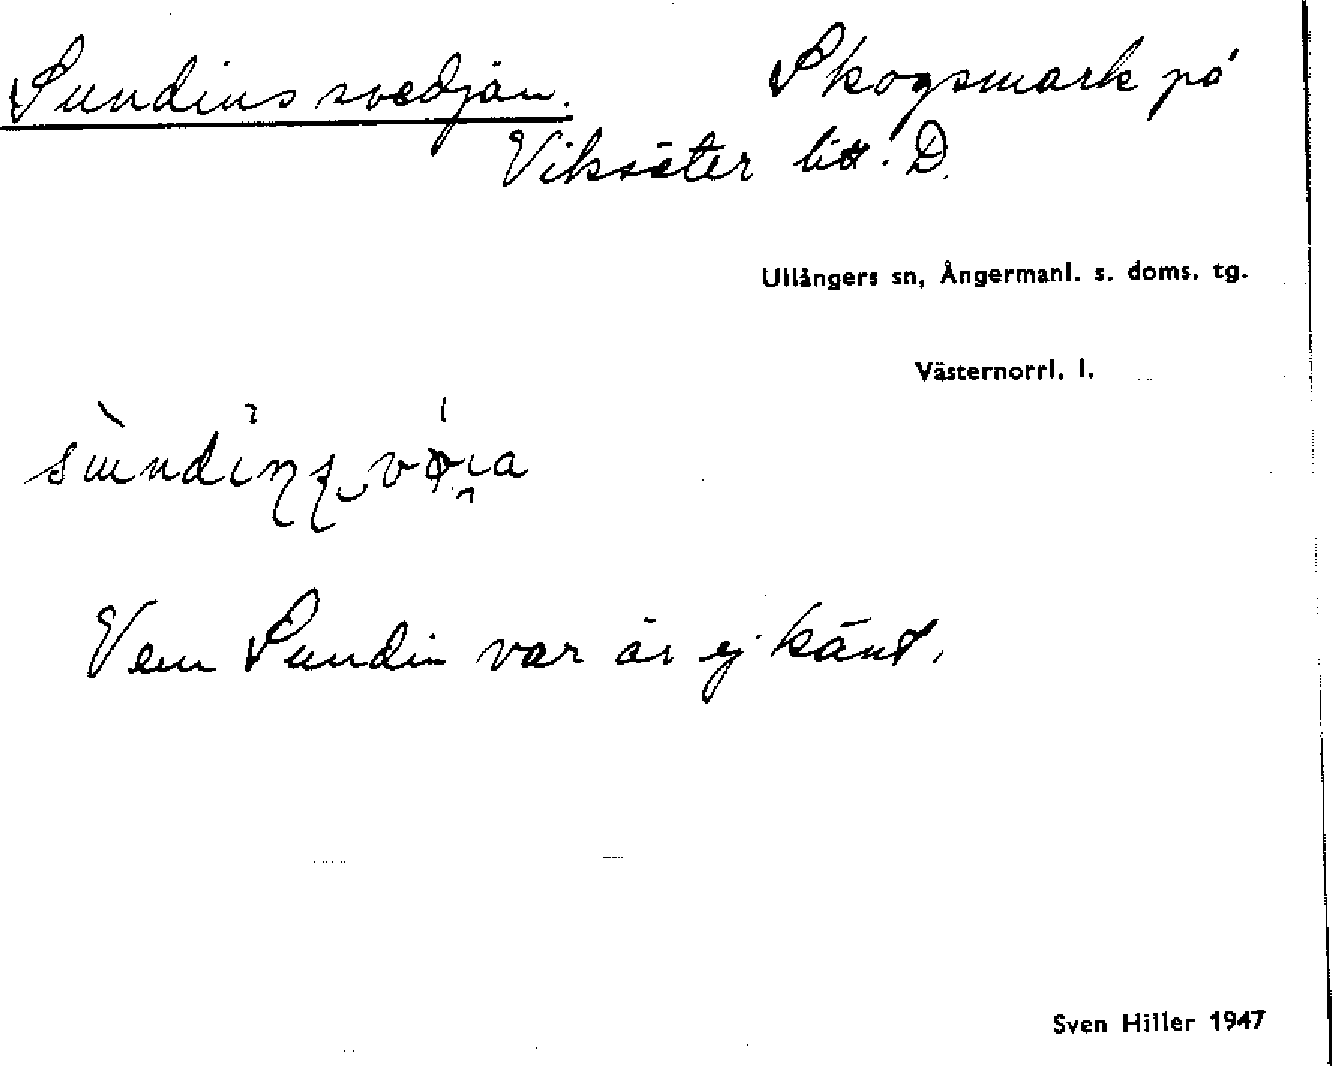 Sundins svedjan. Skogsmark på
Viksäter litt. D.
Ullångers sn, Ångermanl. s. doms. tg.
Västernorrl. l.
Vem Sundin var är ej känt.
Sven Hiller 1947